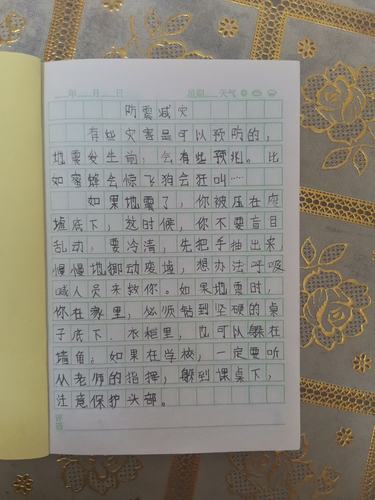 年 月 日 星期 天气
防震减灾
有些灾害是可以预防的，
地震发生前，会有些预兆。比
如蜜蜂会惊飞狗会狂叫……
如果地震了，你被压在废
墟底下，这时候，你不要盲目
乱动，要冷清，先把手抽出来，
慢慢地挪动废墟，想办法呼吸
喊人员来救你。如果地震时，
你在家里，必须钻到坚硬的桌
子底下．水柜里，也可以躲在
墙角，如果在学校，一定要听
从老师的指挥，躲到课桌下，
注意保护头部。
评语